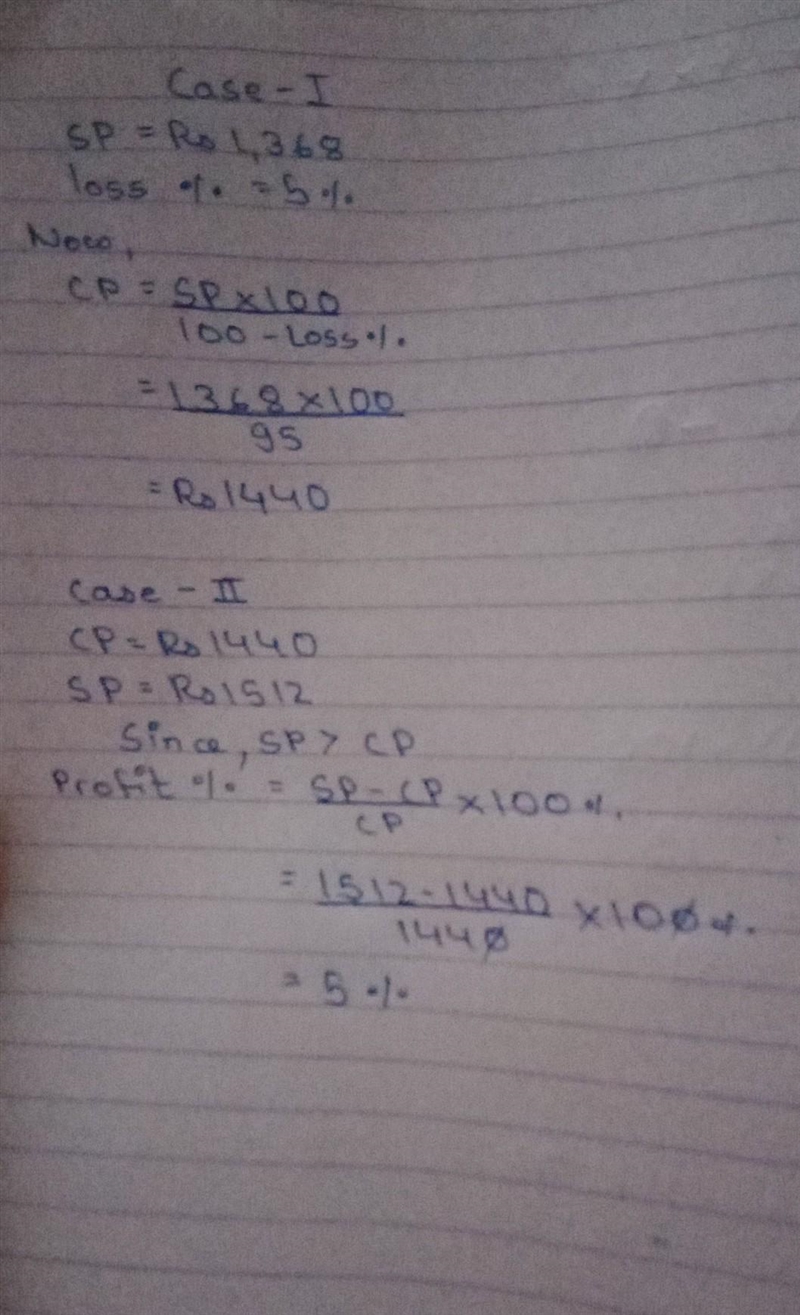 Case - I
SP = Rs 1,368
loss % = 5%
Now,
CP = SP × 100
100 - Loss%
= 1368 × 100
95
= Rs 1440
Case - II
CP = Rs 1440
SP = Rs 1512
Since, SP > CP
Profit % = SP - CP × 100%
CP
= 1512 - 1440 × 100%
1440
= 5%